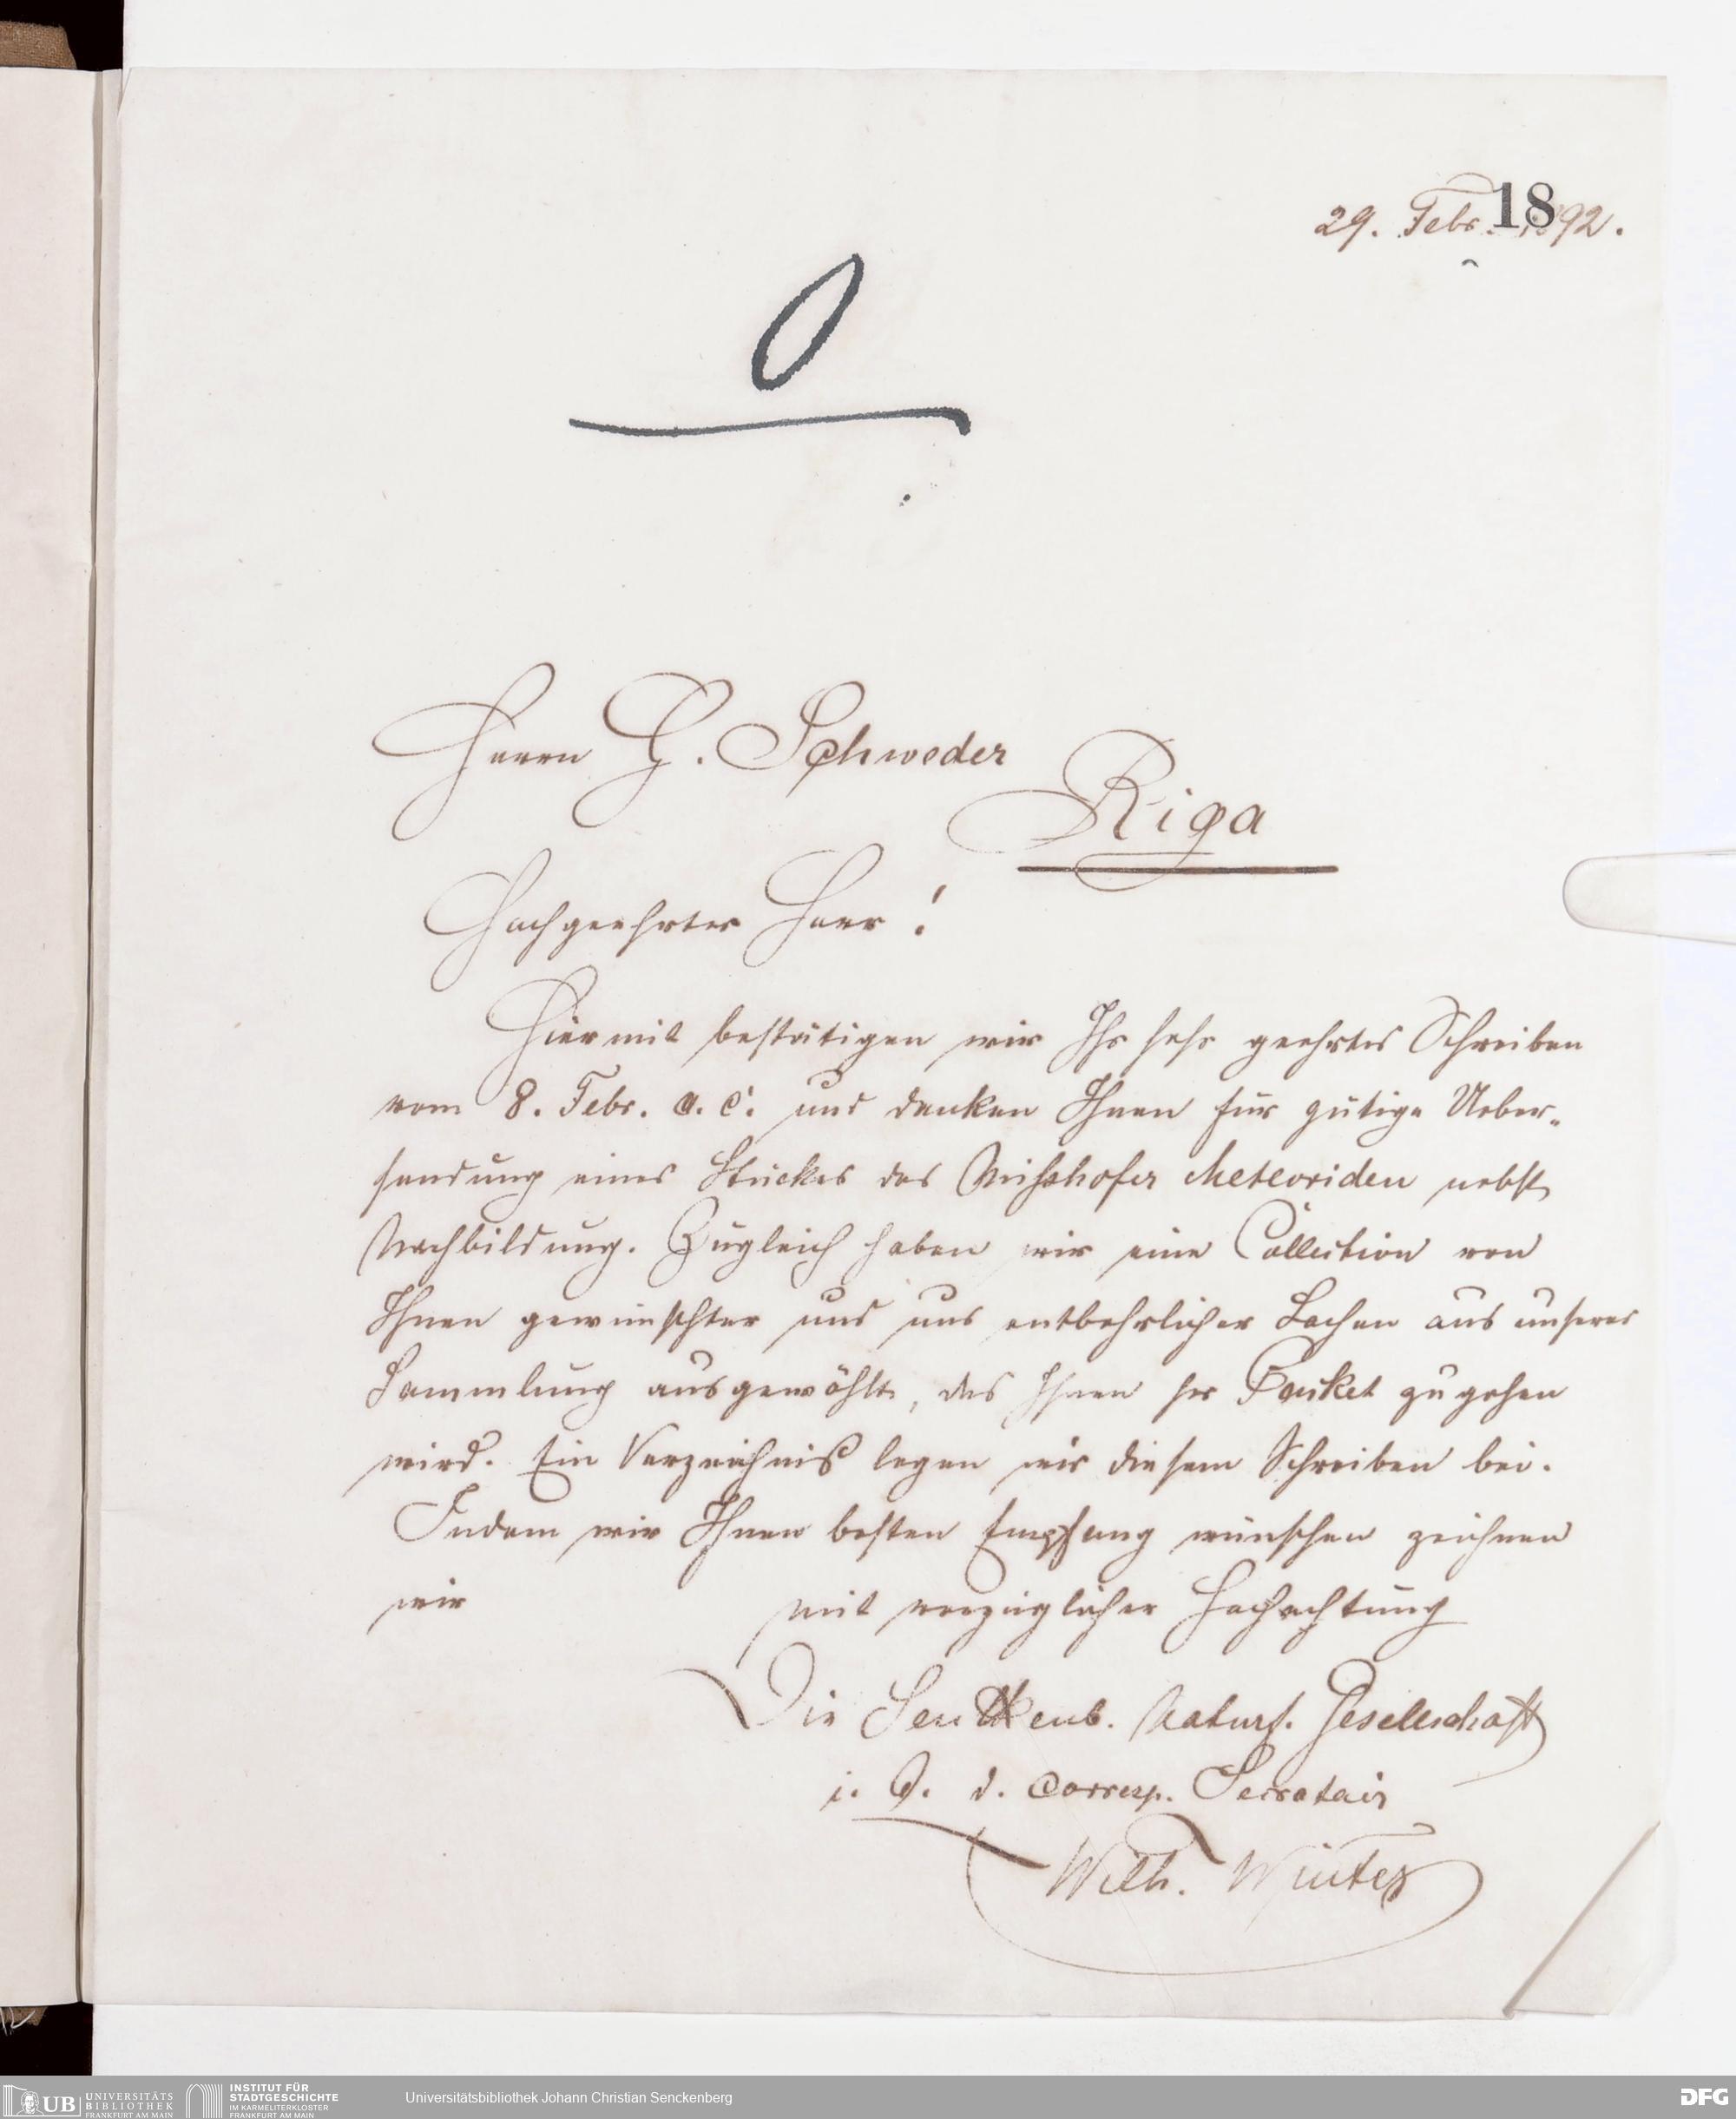 18
29. Febr. 1892.
0
Herrn G. Schweder
Riga
Hochgeehrter Herr!
Hiermit bestätigen wir Ihr sehr geehrtes Schreiben
vom 8. Febr. a. c. und danken Ihnen für gütige Ueber-
sendung eines Stückes des Misshofer Meteoriden nebst
Nachbildung. Zugleich haben wir eine Collection von
Ihnen gewünschter und uns entbehrlicher Sachen aus unserer
Sammlung ausgewählt, das Ihnen per Packet zugehen
wird. Ein Verzeichniß legen wir diesem Schreiben bei.
Indem wir Ihnen besten Empfang wünschen zeichnen
wir mit vorzüglicher Hochachtung
Die Senckenb. Naturf. Gesellschaft
i. A. d. corresp. Secretair
Wilh. Winter
UB UNIVERSITÄTS
BIBLIOTHEK
FRANKFURT AM MAIN
INSTITUT FÜR
STADTGESCHICHTE
IM KARMELITERKLOSTER
FRANKFURT AM MAIN
Universitätsbibliothek Johann Christian Senckenberg
DFG